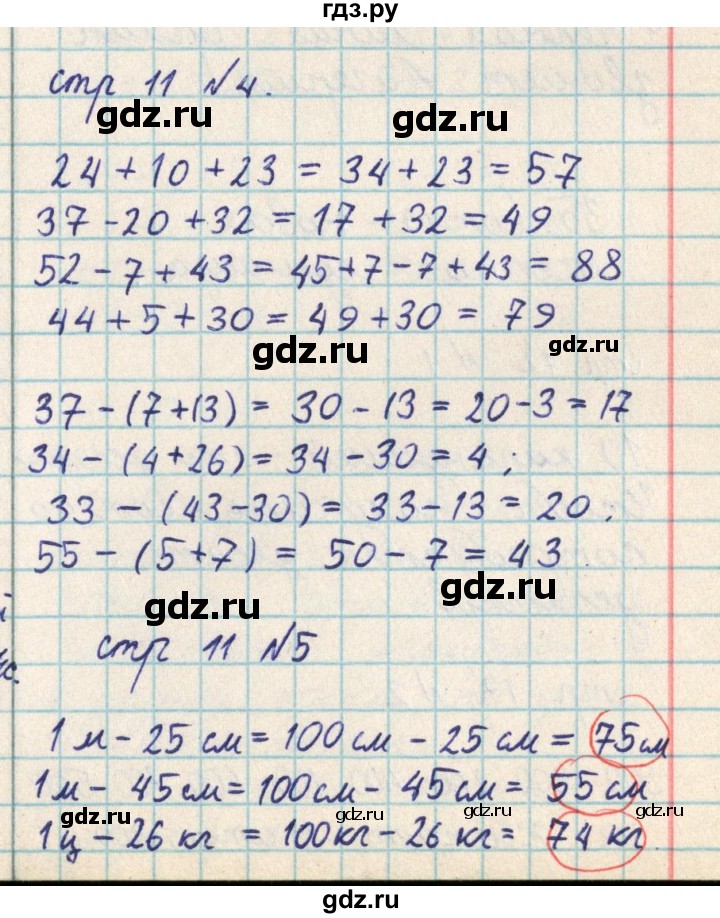 гдз.ру
стр 11 №4.
gdz.ru gdz.ru
24 + 10 + 23 = 34 + 23 = 57
37 - 20 + 32 = 17 + 32 = 49
52 - 7 + 43 = 45 + 7 - 7 + 43 = 88
44 + 5 + 30 = 49 + 30 = 79
gdz.ru gdz.ru
37 - (7 + 13) = 30 - 13 = 20 - 3 = 17
34 - (4 + 26) = 34 - 30 = 4;
33 - (43 - 30) = 33 - 13 = 20;
55 - (5 + 7) = 50 - 7 = 43.
gdz.ru gdz.ru
стр 11 №5
1 м - 25 см = 100 см - 25 см = 75 см
1 м - 45 см = 100 см - 45 см = 55 см
1 ц - 26 кг = 100 кг - 26 кг = 74 кг.
gdz.ru gdz.ru
gdz.ru